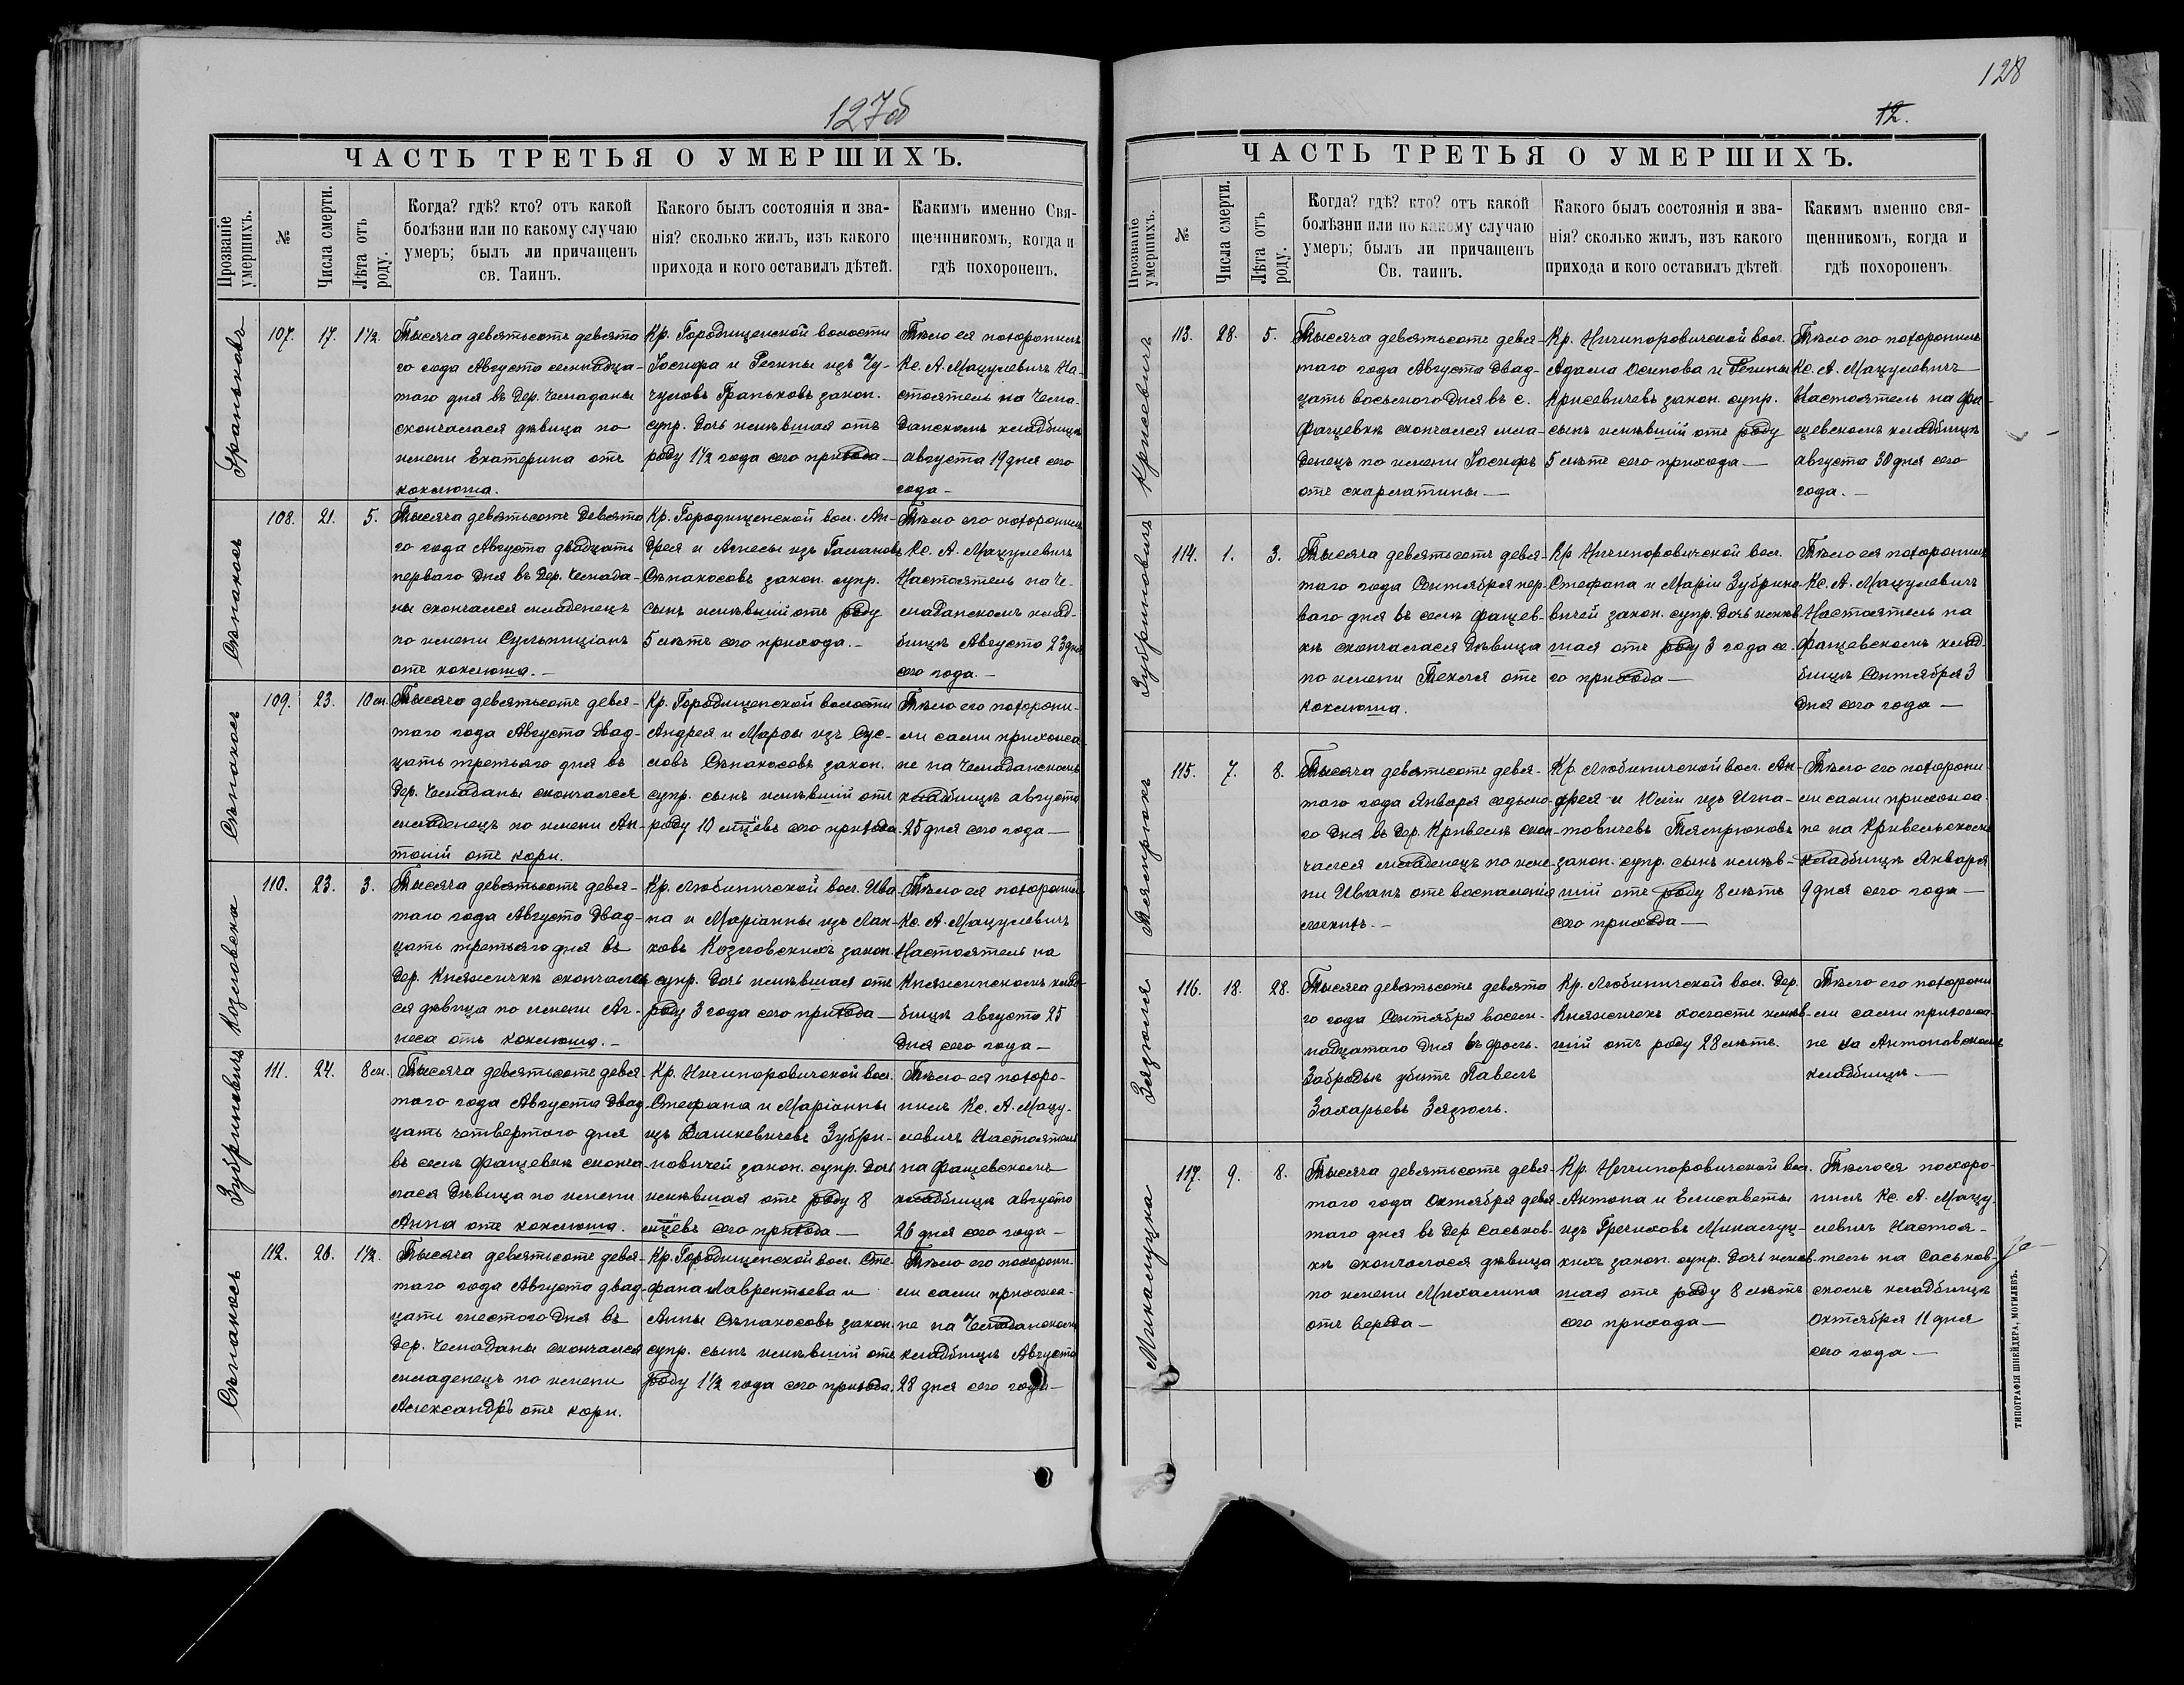 127об
ЧАСТЬ ТРЕТЬЯ О УМЕРШИХЪ.
Прозваніе умершихъ.
№
Числа смерти.
Лѣта отъ роду.
Когда? гдѣ? кто? отъ какой
болѣзни или по какому случаю
умеръ; былъ ли причащенъ
св. Таинъ.
Какого былъ состоянія и зва-
нія? сколько жилъ, изъ какого
прихода и кого оставилъ дѣтей.
Какимъ именно Свя-
щеннникомъ, когда и
гдѣ похороненъ.
Граньковъ
107. 17. 1½.
Тысяча девятьсотъ девята
го года Августа семнадца-
таго дня въ дер. Чемаданы
скончалася дѣвица по
имени Екатерина отъ
коклюша.
Кр. Городищенской волости
Іосифа и Регины изъ Чу-
чуловъ Граньковъ закон.
супр. дочь имѣвшая отъ
роду 1½ года сего прихода—
Тѣло ея похоронилъ
Кс. А. Мацулевичъ На-
стоятель на Чема-
данскомъ кладбищѣ
августа 19 дня сего
года—
Сѣпакосъ
108. 21. 5.
Тысяча девятьсотъ девята
го года Августа двадцать
перваго дня въ дер. Чемада-
ны скончался младенецъ
по имени Сульпиціанъ
отъ коклюша.—
Кр. Городищенской вол. Ан-
дрея и Агнесы изъ Гасманов
Сѣпакосовъ закон. супр.
сынъ имѣвшій отъ роду
5 лѣтъ сего прихода.—
Тѣло его похоронилъ
Кс. А. Мацулевичъ
Настоятель на Че-
маданскомъ клад-
бищѣ Августа 23 дня
сего года.—
Сѣпакосъ
109. 23. 10 м.
Тысяча девятьсотъ девя-
таго года Августа двад-
цать третьяго дня въ
дер. Чемаданы скончался
младенецъ по имени Ан-
тоній отъ кори.
Кр. Городищенской волости
Андрея и Марѳы изъ Сус-
ловъ Сѣпакосовъ закон.
супр. сынъ имѣвшій отъ
роду 10 мцѣвъ сего прихода.
Тѣло его похорони-
ли сами прихожа-
не на Чемаданскомъ
кладбищѣ августа
25 дня сего года—
Козловска
110. 23. 3.
Тысяча девятьсотъ девя-
таго года Августа двад-
цать третьяго дня въ
дер. Княжичкѣ скончала
ся дѣвица по имени Аг-
неса отъ коклюша.—
Кр. Любиничской вол. Ива-
на и Маріанны изъ Лан-
ковъ Козловскихъ закон.
супр. дочь имѣвшая отъ
роду 3 года сего прихода—
Тѣло ея похоронилъ
Кс. А. Мацулевичъ
Настоятель на
Княжинскомъ клад-
бищѣ августа 25
дня сего года—
Зубриновичъ
111. 24. 8 м.
Тысяча девятьсотъ девя-
таго года Августа двад-
цать четвертого дня
въ селѣ Фащевкѣ сконча-
лася дѣвица по имени
Анна отъ коклюша.
Кр. Ничипоровичской вол.
Стефана и Маріанны
изъ Вашкевичевъ Зубри-
новичей закон. супр. дочь
имѣвшая отъ роду 8
мцѣвъ сего прихода—
Тѣло ея похоро-
нилъ Кс. А. Мацу-
левичъ Настоятель
на Фащевскомъ
кладбищѣ августа
26 дня сего года—
Сѣпакосъ
112. 26. 1½.
Тысяча девятьсотъ девя-
таго года Августа двад-
цать шестого дня въ
дер. Чемаданы скончался
младенецъ по имени
Александръ отъ кори.
Кр. Городищенской вол. Сте-
фана Лаврентьева и
Анны Сѣпакосовъ закон.
супр. сынъ имѣвшій отъ
роду 1½ года сего прихода.
Тѣло его похорони-
ли сами прихожа-
не на Чемаданскомъ
кладбищѣ Августа
28 дня сего года—
128
12.
ЧАСТЬ ТРЕТЬЯ О УМЕРШИХЪ.
Прозваніе умершихъ.
№
Числа смерти.
Лѣта отъ роду.
Когда? гдѣ? кто? отъ какой
болѣзни или по какому случаю
умеръ; былъ ли причащенъ
Св. таинъ.
Какого былъ состоянія и зва-
нія? сколько жилъ, изъ какого
прихода и кого оставилъ дѣтей.
Какимъ именно свя-
щенникомъ, когда и
гдѣ похороненъ.
Крисевичъ
113. 28. 5.
Тысяча девятьсотъ девя-
таго года Августа двад-
цать восьмого дня въ с.
Фащевкѣ скончался мла-
денецъ по имени Іосифъ
отъ скарлатины—
Кр. Ничипоровичской вол.
Адама Осипова и Регины
Крисевичевъ закон. супр.
сынъ имѣвшій отъ роду
5 лѣтъ сего прихода—
Тѣло его похоронилъ
Кс. А. Мацулевичъ
Настоятель на Фа-
щевскомъ кладбищѣ
августа 30 дня сего
года.—
Зубриновичъ
114. 1. 3.
Тысяча девятьсотъ девя-
таго года Сентября пер-
ваго дня въ селѣ Фащев-
кѣ скончалася дѣвица
по имени Текля отъ
коклюша.
Кр. Ничипоровичской вол.
Стефана и Маріи Зубрино-
вичей закон. супр. дочь имѣв-
шая отъ роду 3 года се-
го прихода—
Тѣло ея похоронилъ
Кс. А. Мацулевичъ
Настоятель на
Фащевскомъ клад-
бищѣ Сентября 3
дня сего года—
Тяспрюкъ
115. 7. 8.
Тысяча девятьсотъ девя-
таго года Января седьмо-
го дня въ дер. Кривелѣ скон-
чался младенецъ по име-
ни Иванъ отъ воспаленія
легкихъ.—
Кр. Любиничской вол. Ан-
дрея и Юліи изъ Игна-
товичевъ Тяспрюковъ
закон. супр. сынъ имѣв-
шій отъ роду 8 лѣтъ
сего прихода—
Тѣло его похорони-
ли сами прихожа-
не на Кривельскомъ
кладбищѣ Января
9 дня сего года—
Зязюля
116. 18. 28.
Тысяча девятьсотъ девята
го года Сентября восем-
надцатаго дня въ фоль.
Забродьѣ убитъ Павелъ
Захарьевъ Зязюль.
Кр. Любиничской вол. дер.
Княжичекъ холостъ имѣв-
шій отъ роду 28 лѣтъ.
Тѣло его похорони
ли сами прихожа-
не на Антоновскомъ
кладбищѣ.—
Микалуцка
117. 9. 8.
Тысяча девятьсотъ девя-
таго года Октября девя-
таго дня въ дер. Саськов-
кѣ скончалася дѣвица
по имени Михалина
отъ вереда—
Кр. Ничипоровичской вол.
Антона и Елисаветы
изъ Гречиховъ Микалуц-
кихъ закон. супр. дочь имѣв-
шая отъ роду 8 лѣтъ
сего прихода—
Тѣло ея похоро-
нилъ Кс. А. Мацу-
левичъ Настоя-
тель на Саськов-
скомъ кладбищѣ
Октября 11 дня
сего года—
ТИПОГРАФІЯ ШНЕЙДЕРА, МОГИЛЕВЪ.